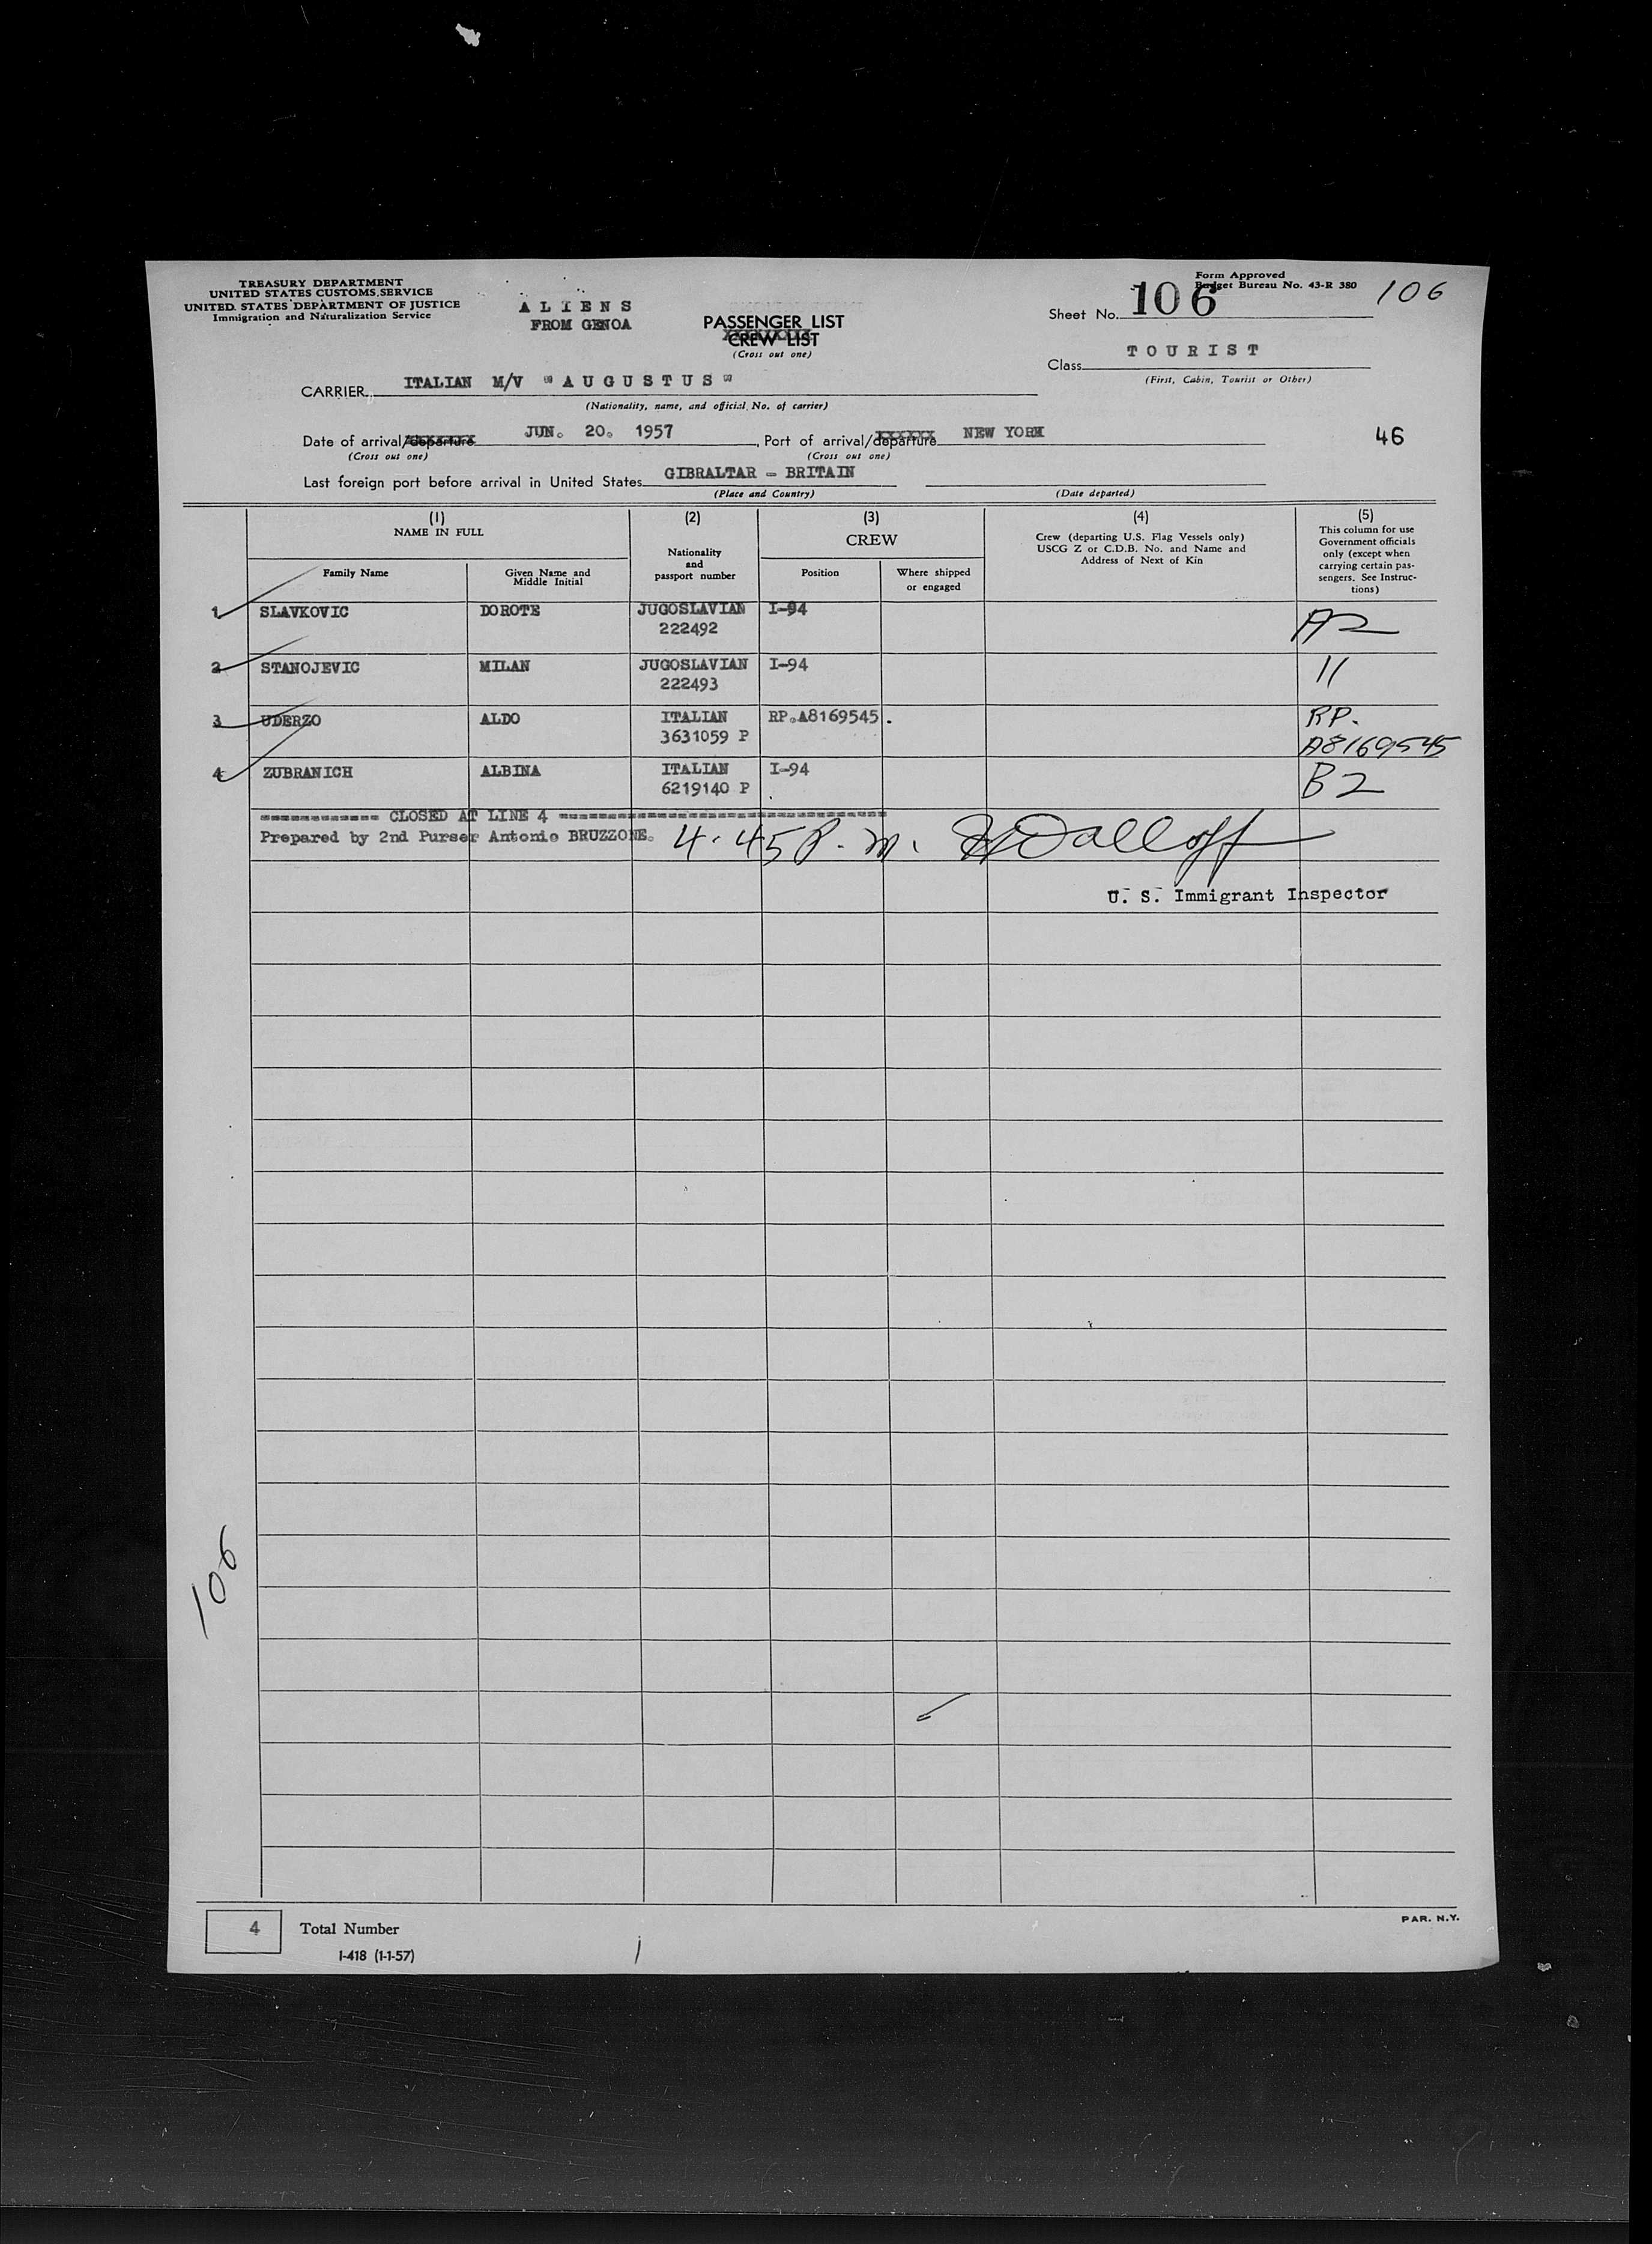 TREASURY DEPARTMENT
UNITED STATES CUSTOMS SERVICE
UNITED STATES DEPARTMENT OF JUSTICE
Immigration and Naturalization Service
A L I E N S
FROM GENOA
PASSENGER LIST
CREW LIST
(Cross out one)
Form Approved
Budget Bureau No. 43-R 380
Sheet No. 106
106
Class TOURIST
(First, Cabin, Tourist or Other)
CARRIER ITALIAN M/V "AUGUSTUS"
(Nationality, name, and official No. of carrier)
Date of arrival/departure JUN. 20. 1957, Port of arrival/departure NEW YORK
46
(Cross out one) (Cross out one)
Last foreign port before arrival in United States GIBRALTAR - BRITAIN
(Place and Country) (Date departed)
(1)
NAME IN FULL
Family Name
Given Name and
Middle Initial
(2)
Nationality
and
passport number
(3)
CREW
Position
Where shipped
or engaged
(4)
Crew (departing U.S. Flag Vessels only)
USCG Z or C.D.B. No. and Name and
Address of Next of Kin
(5)
This column for use
Government officials
only (except when
carrying certain pas-
sengers. See Instruc-
tions)
1 SLAVKOVIC DOROTE JUGOSLAVIAN I-94 A2
222492
2 STANOJEVIC MILAN JUGOSLAVIAN I-94 11
222493
3 UDERZO ALDO ITALIAN RP.A8169545. RP.
3631059 P A8169545
4 ZUBRANICH ALBINA ITALIAN I-94 B2
6219140 P
============ CLOSED AT LINE 4 ==================================
Prepared by 2nd Purser Antonio BRUZZONE. 4.45 P.m.
U. S. Immigrant Inspector
106
4 Total Number
I-418 (1-1-57)
PAR. N.Y.